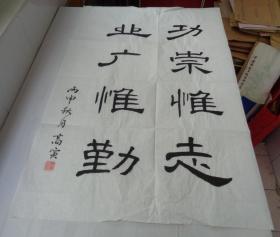 功崇惟志
业广惟勤
丙申秋月 高寅